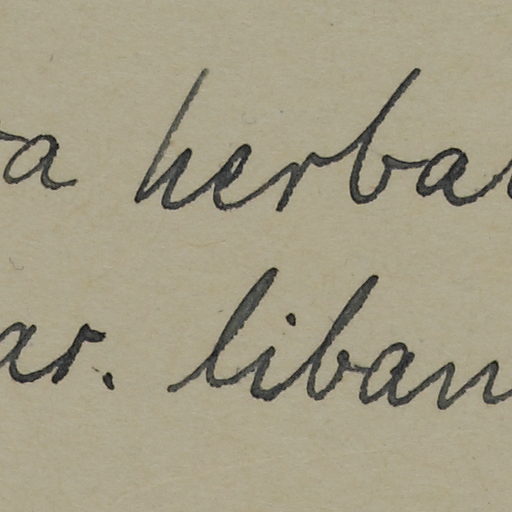 a herba
ar. liban